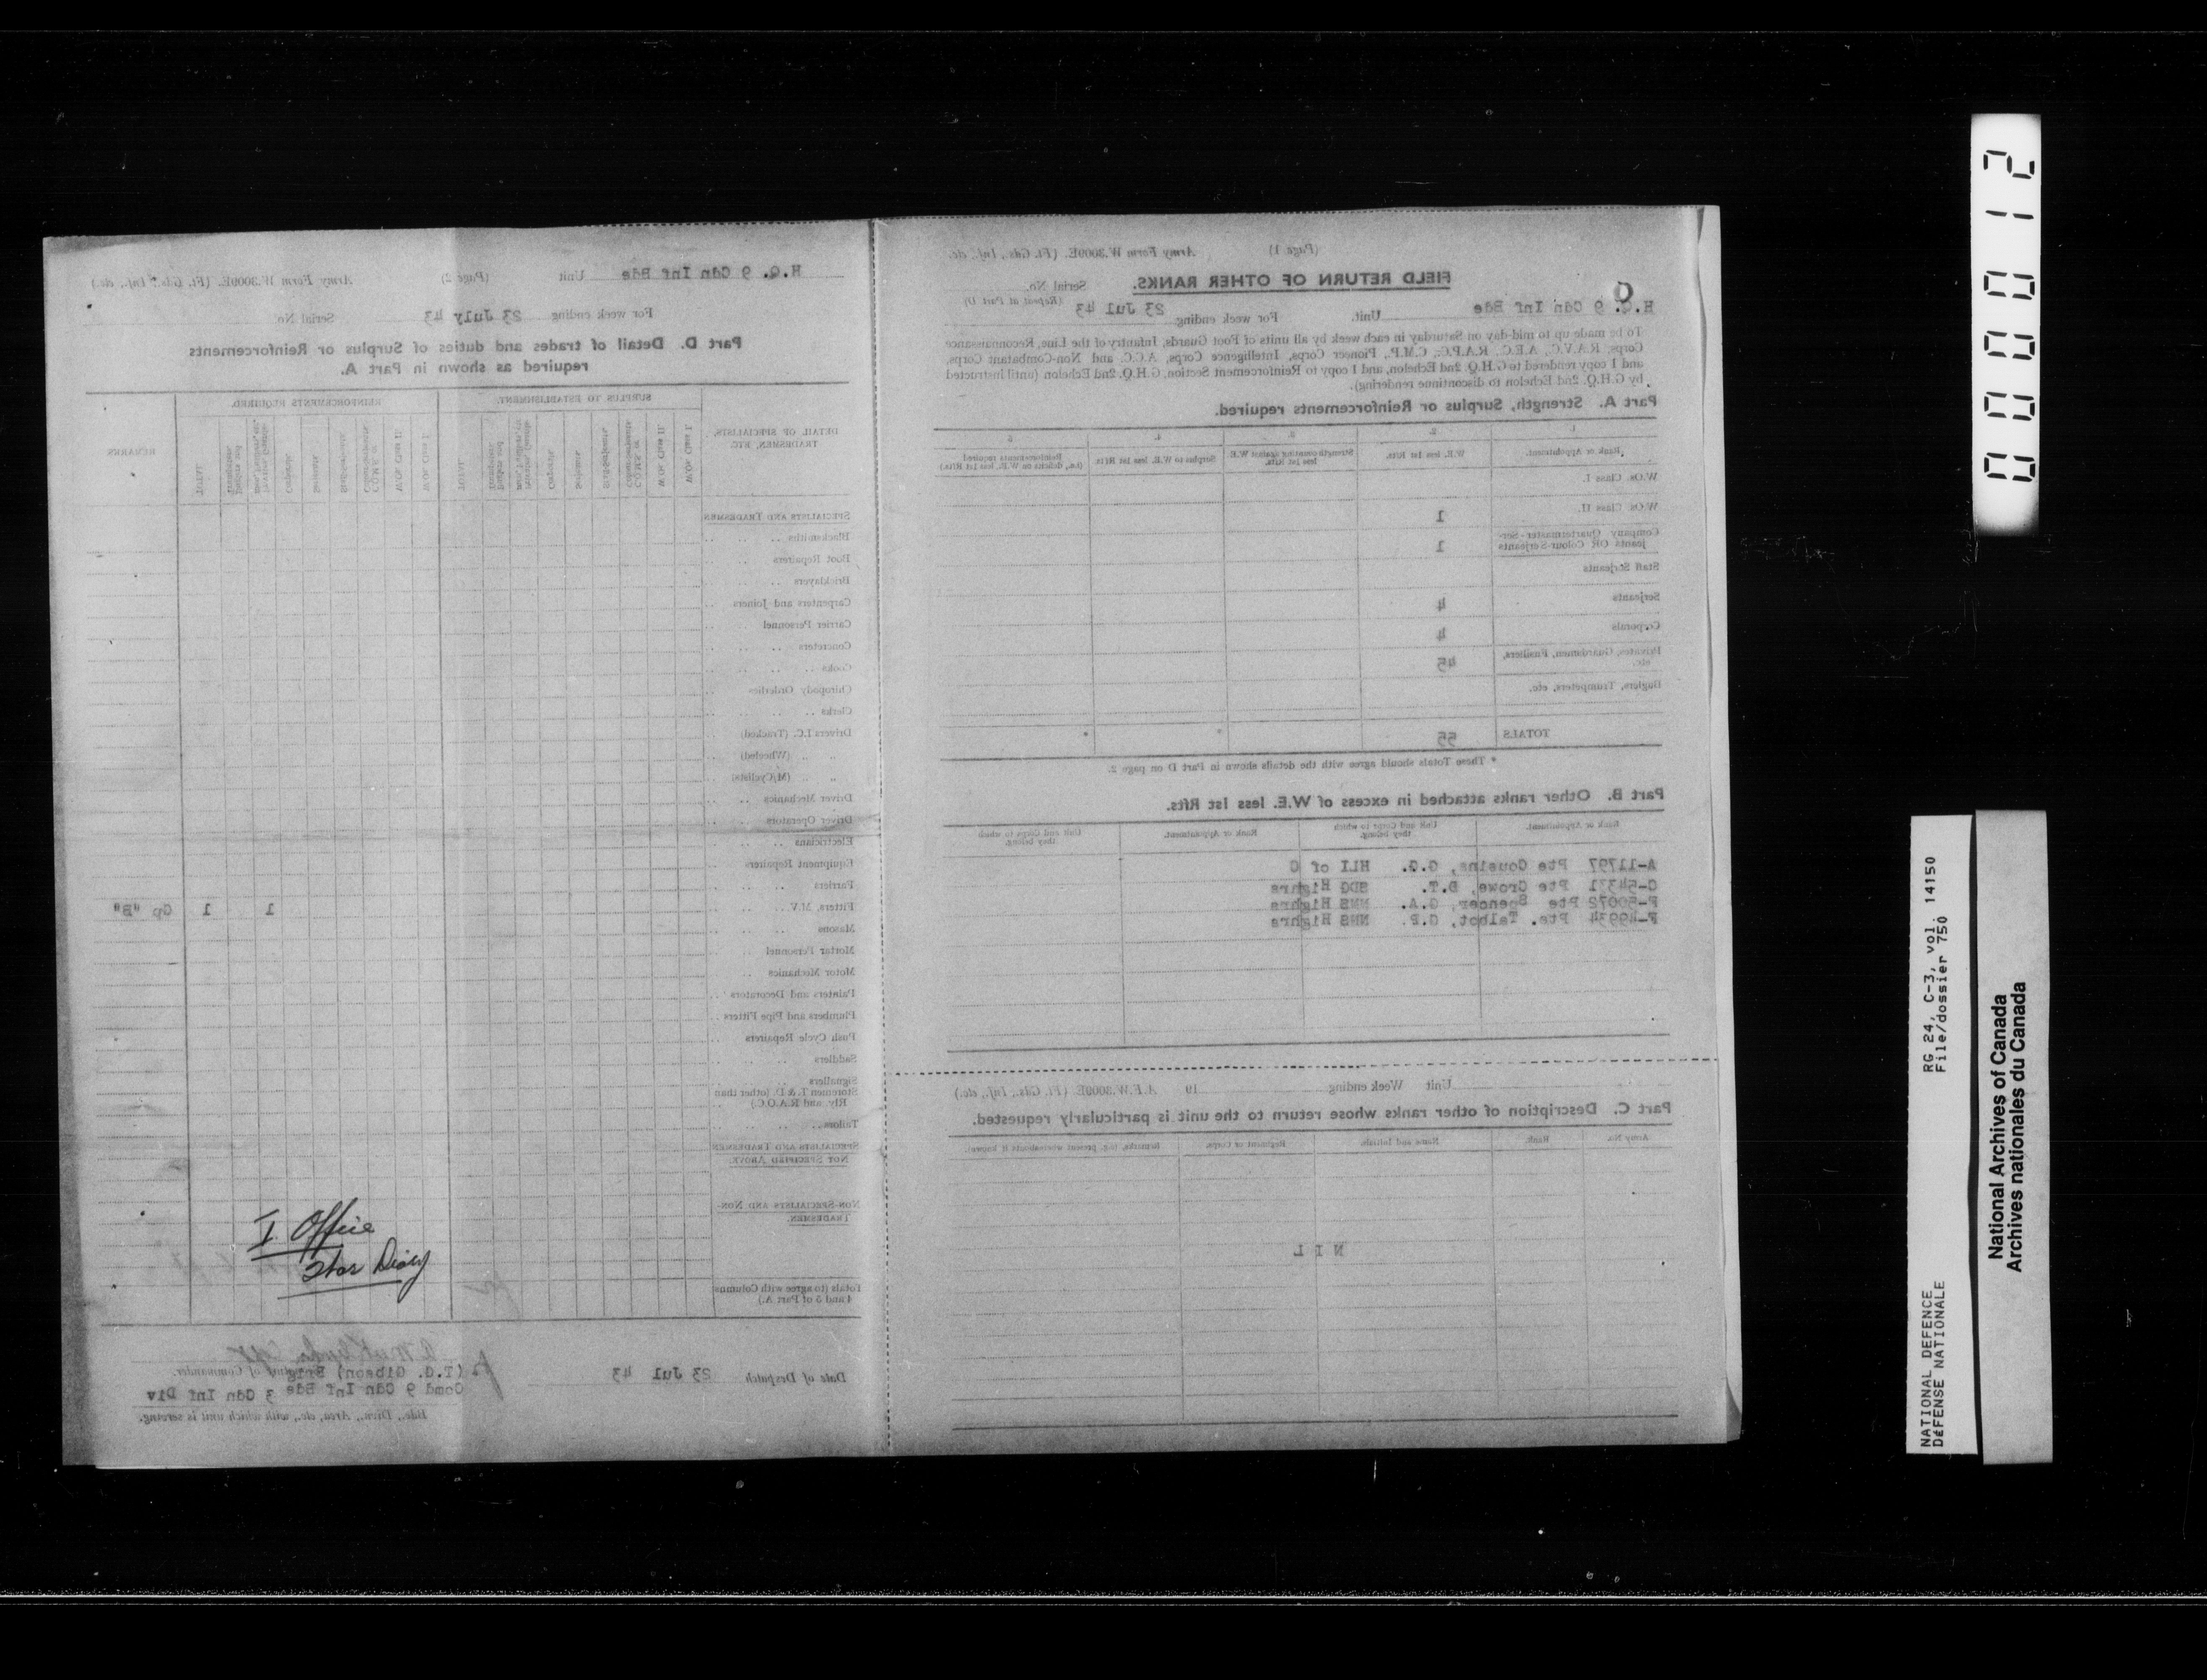 (Page 1) Army Form W.3009E. (Ft. Gds., Inf., etc.
FIELD RETURN OF OTHER RANKS. Serial No.
H.Q. 9 Cdn Inf Bde Unit. For week ending 23 Jul 43 (Repeat at Part D)
To be made up to mid-day on Saturday in each week by all units of Foot Guards, Infantry of the Line, Reconnaissance
Corps, R.A.V.C., A.E.C., R.A.P.C., C.M.P., Pioneer Corps, Intelligence Corps, A.C.C. and Non-Combatant Corps,
and 1 copy rendered to G.H.Q. 2nd Echelon, and 1 copy to Reinforcement Section, G.H.Q. 2nd Echelon (until instructed
by G.H.Q. 2nd Echelon to discontinue rendering).
Part A. Strength, Surplus or Reinforcements required.
1. 2. 3. 4. 5.
Rank or Appointment. W.E. less 1st Rfts. Strength counting against W.E. less 1st Rfts. Surplus to W.E. less 1st Rfts. Reinforcements required (i.e., deficits on W.E. less 1st Rfts.)
W.Os. Class I.
W.Os. Class II. 1
Company Quartermaster-Ser-
jeants OR Colour-Serjeants 1
Staff Serjeants
Serjeants 4
Corporals 4
Privates, Guardsmen, Fusiliers,
etc. 45
Buglers, Trumpeters, etc.
TOTALS 55 * * *
* These Totals should agree with the details shown in Part D on page 2.
Part B. Other ranks attached in excess of W.E. less 1st Rfts.
Rank or Appointment. Unit and Corps to which they belong. Rank or Appointment. Unit and Corps to which they belong.
A-11797 Pte Cousins, G.G. HLI of C
C-54331 Pte Crowe, D.T. SDG Highrs
F-50072 Pte Spencer, G.A. NNS Highrs
F-49934 Pte. Talbot, G.P. NNS Highrs
Unit Week ending 19 A.F.W.3009E (Ft. Gds., Inf., etc.)
Part C. Description of other ranks whose return to the unit is particularly requested.
Army No. Rank. Name and Initials. Regiment or Corps. Remarks, (e.g. present whereabouts if known).
N I L
H.Q. 9 Cdn Inf Bde Unit (Page 2) Army Form W.3009E. (Ft. Gds., Inf., etc.)
For week ending 23 July 43 Serial No.
Part D. Detail of trades and duties of Surplus or Reinforcements
required as shown in Part A.
DETAIL OF SPECIALISTS, TRADESMEN, ETC. SURPLUS TO ESTABLISHMENT. REINFORCEMENTS REQUIRED. REMARKS
W.Os. Class I. W.Os. Class II. Staff-Serjeants Serjeants Corporals TOTAL
W.Os. Class I. W.Os. Class II. Staff-Serjeants Serjeants Corporals TOTAL
SPECIALISTS AND TRADESMEN
Blacksmiths
Boot Repairers
Bricklayers
Carpenters and Joiners
Carrier Personnel
Concretors
Cooks
Chiropody Orderlies
Clerks
Drivers I.C. (Tracked)
" " (Wheeled)
" " (M/Cyclists)
Driver Mechanics
Driver Operators
Electricians
Equipment Repairers
Farriers
Fitters, M.V. 1 1 Gp "B"
Masons
Mortar Personnel
Motor Mechanics
Painters and Decorators
Plumbers and Pipe Fitters
Push Cycle Repairers
Saddlers
Signallers
Storemen T. & D. (other than
Rly. and R.A.O.C.)
Tailors
SPECIALISTS AND TRADESMEN
NOT SPECIFIED ABOVE.
NON-SPECIALISTS AND NON-
TRADESMEN.
Totals (to agree with Columns
4 and 5 of Part A.)
I Office
War Diary
Date of Despatch 23 Jul 43
(T.G. Gibson) Brig Signature of Commander.
Comd 9 Cdn Inf Bde 3 Cdn Inf Div
Bde., Divn., Area, etc., with which unit is serving.
000012
RG 24, C-3, vol. 14150
File/dossier 750
NATIONAL DEFENCE
DÉFENSE NATIONALE
National Archives of Canada
Archives nationales du Canada